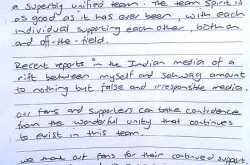 a superbly unified team. The team spirit is
as good as it has ever been, with each
individual supporting each other, both on
and off-the-field.
Recent reports in the Indian media of a
rift between myself and Sehwag amount
to nothing but false and irresponsible media.
Our fans and supporters can take confidence
from the wonderful unity that continues
to exist in this team.
we thank our fans for their continued support